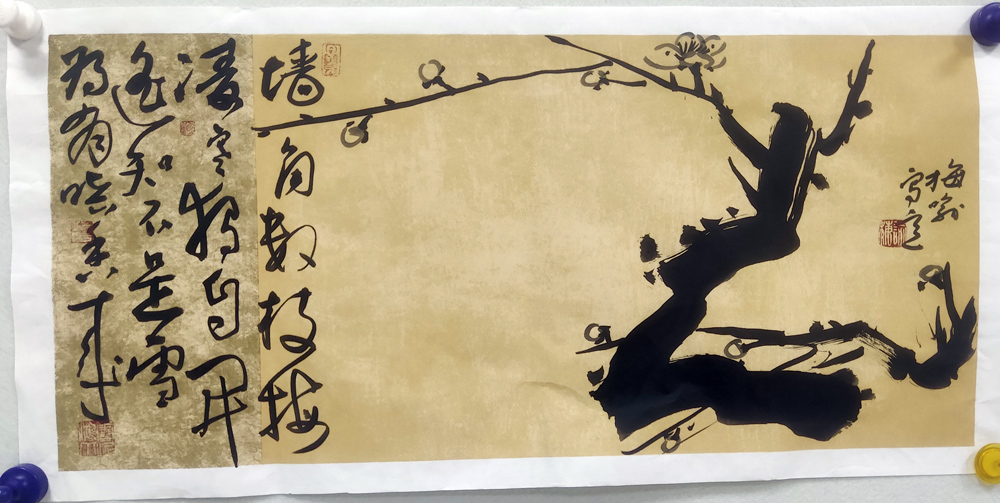 梅
墙角数枝梅
凌寒独自開
遥知不是雪
为有暗香来